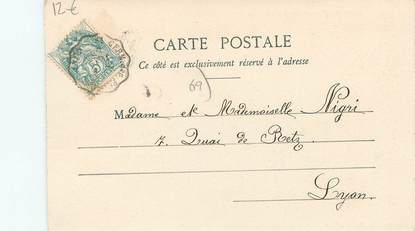 12 €
CARTE POSTALE
Ce côté est exclusivement réservé à l'adresse
69
Madame et Mademoiselle Nigri
7. Quai de Retz
Lyon.